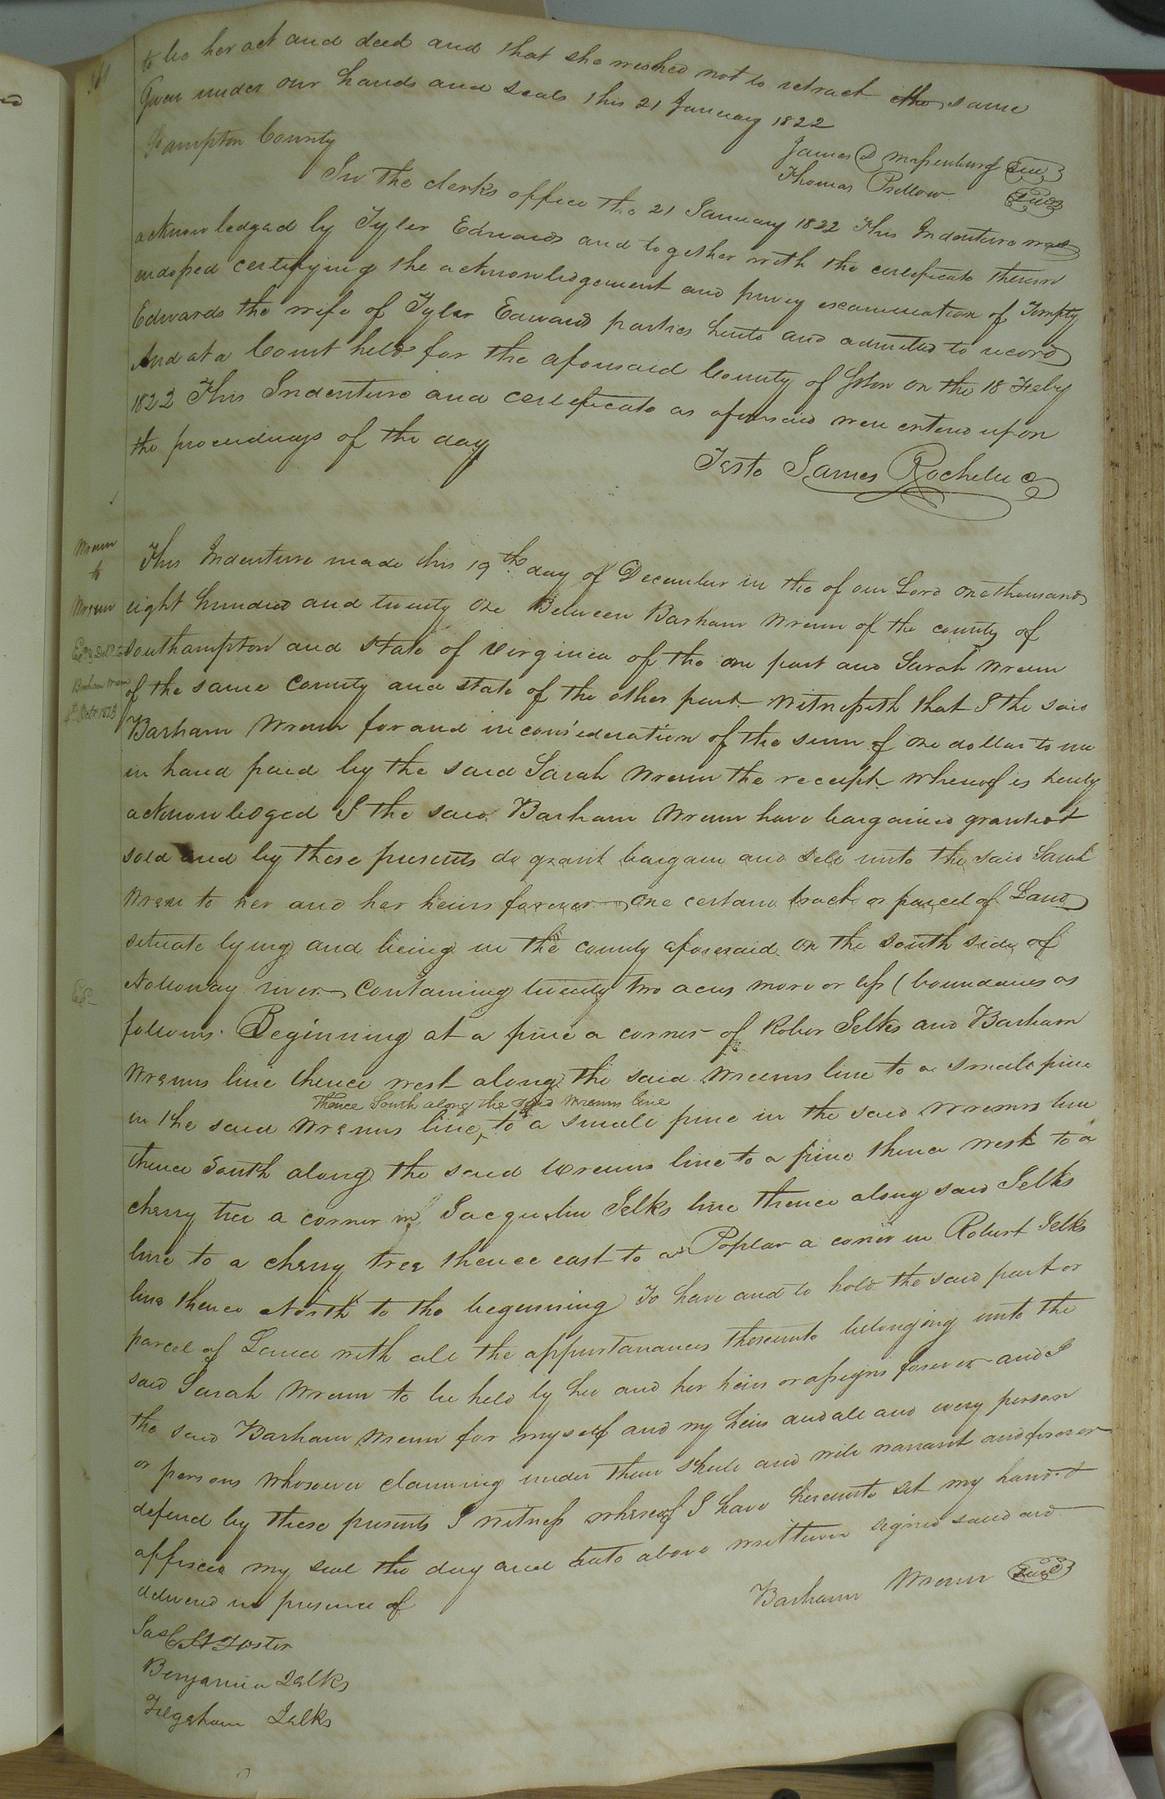 to be her act and deed and that she wished not to retract the same
Given under our hands and seals this 21 January 1822
James D Massenburg Seal
Thomas Prellow Seal
Hampton County
In the clerks office the 21 January 1822 This Indenture was
acknowledged by Tyler Edwards and together with the certificate thereon
endorsed certifying the acknowledgement and privy examination of Tempty
Edwards the wife of Tyler Edwards parties hereto and admitted to record
And at a Court held for the aforesaid County of Shton on the 18 Feby
1822 This Indenture and certificate as aforesaid were entered upon
the proceedings of the day
Teste James Rochelle
Wrenn
to
Wrenn
This Indenture made this 19th day of December in the of our Lord one thousand
eight hundred and twenty one Between Barham Wrenn of the county of
southampton and State of virginea of the one part and Sarah Wrenn
of the same county and state of the other part Witnesseth that I the said
Barham Wrenn for and inconsideration of the sum of one dollar to me
in hand paid by the said Sarah Wrenn the receipt whereof is hereby
acknowledged I the said Barham Wrenn have bargained granted &
sold and by these presents do grant bargain and sell unto the said Sarah
Wrenn to her and her heirs forever one certain tract or parcel of Land
situate lying and being in the county aforesaid on the south side of
Nottoway river containing twenty two acres more or less (boundaries as
follows. Beginning at a pine a corner of Rober Jelks and Barham
Wrenns line thence west along the said Wrenns line to a small pine
in the said Wrenns line, thence South along the said Wrenns line to a small pine in the said Wrenns line
thence South along the said Wrenns line to a pine thence west to a
cherry tree a corner in Jacquelin Jelks line thence along said Jelks
line to a cherry tree thence east to a Poplar a corner in Robert Jelks
line thence North to the beginning To have and to hold the said part or
parcel of Land with all the appurtanances thereunto belonging unto the
said Sarah Wrenn to be held by her and her heirs or assigns forever and I
the said Barham Wrenn for myself and my heirs and all and every person
or persons whosoever claiming under them shall and will warrant and forever
defend by these presents I witness whereof I have hereunto set my hand &
affixed my seal the day and date above written signed seald and
delivered in presence of
Barham Wrenn Seal
Benjamin Jelks
Jelks